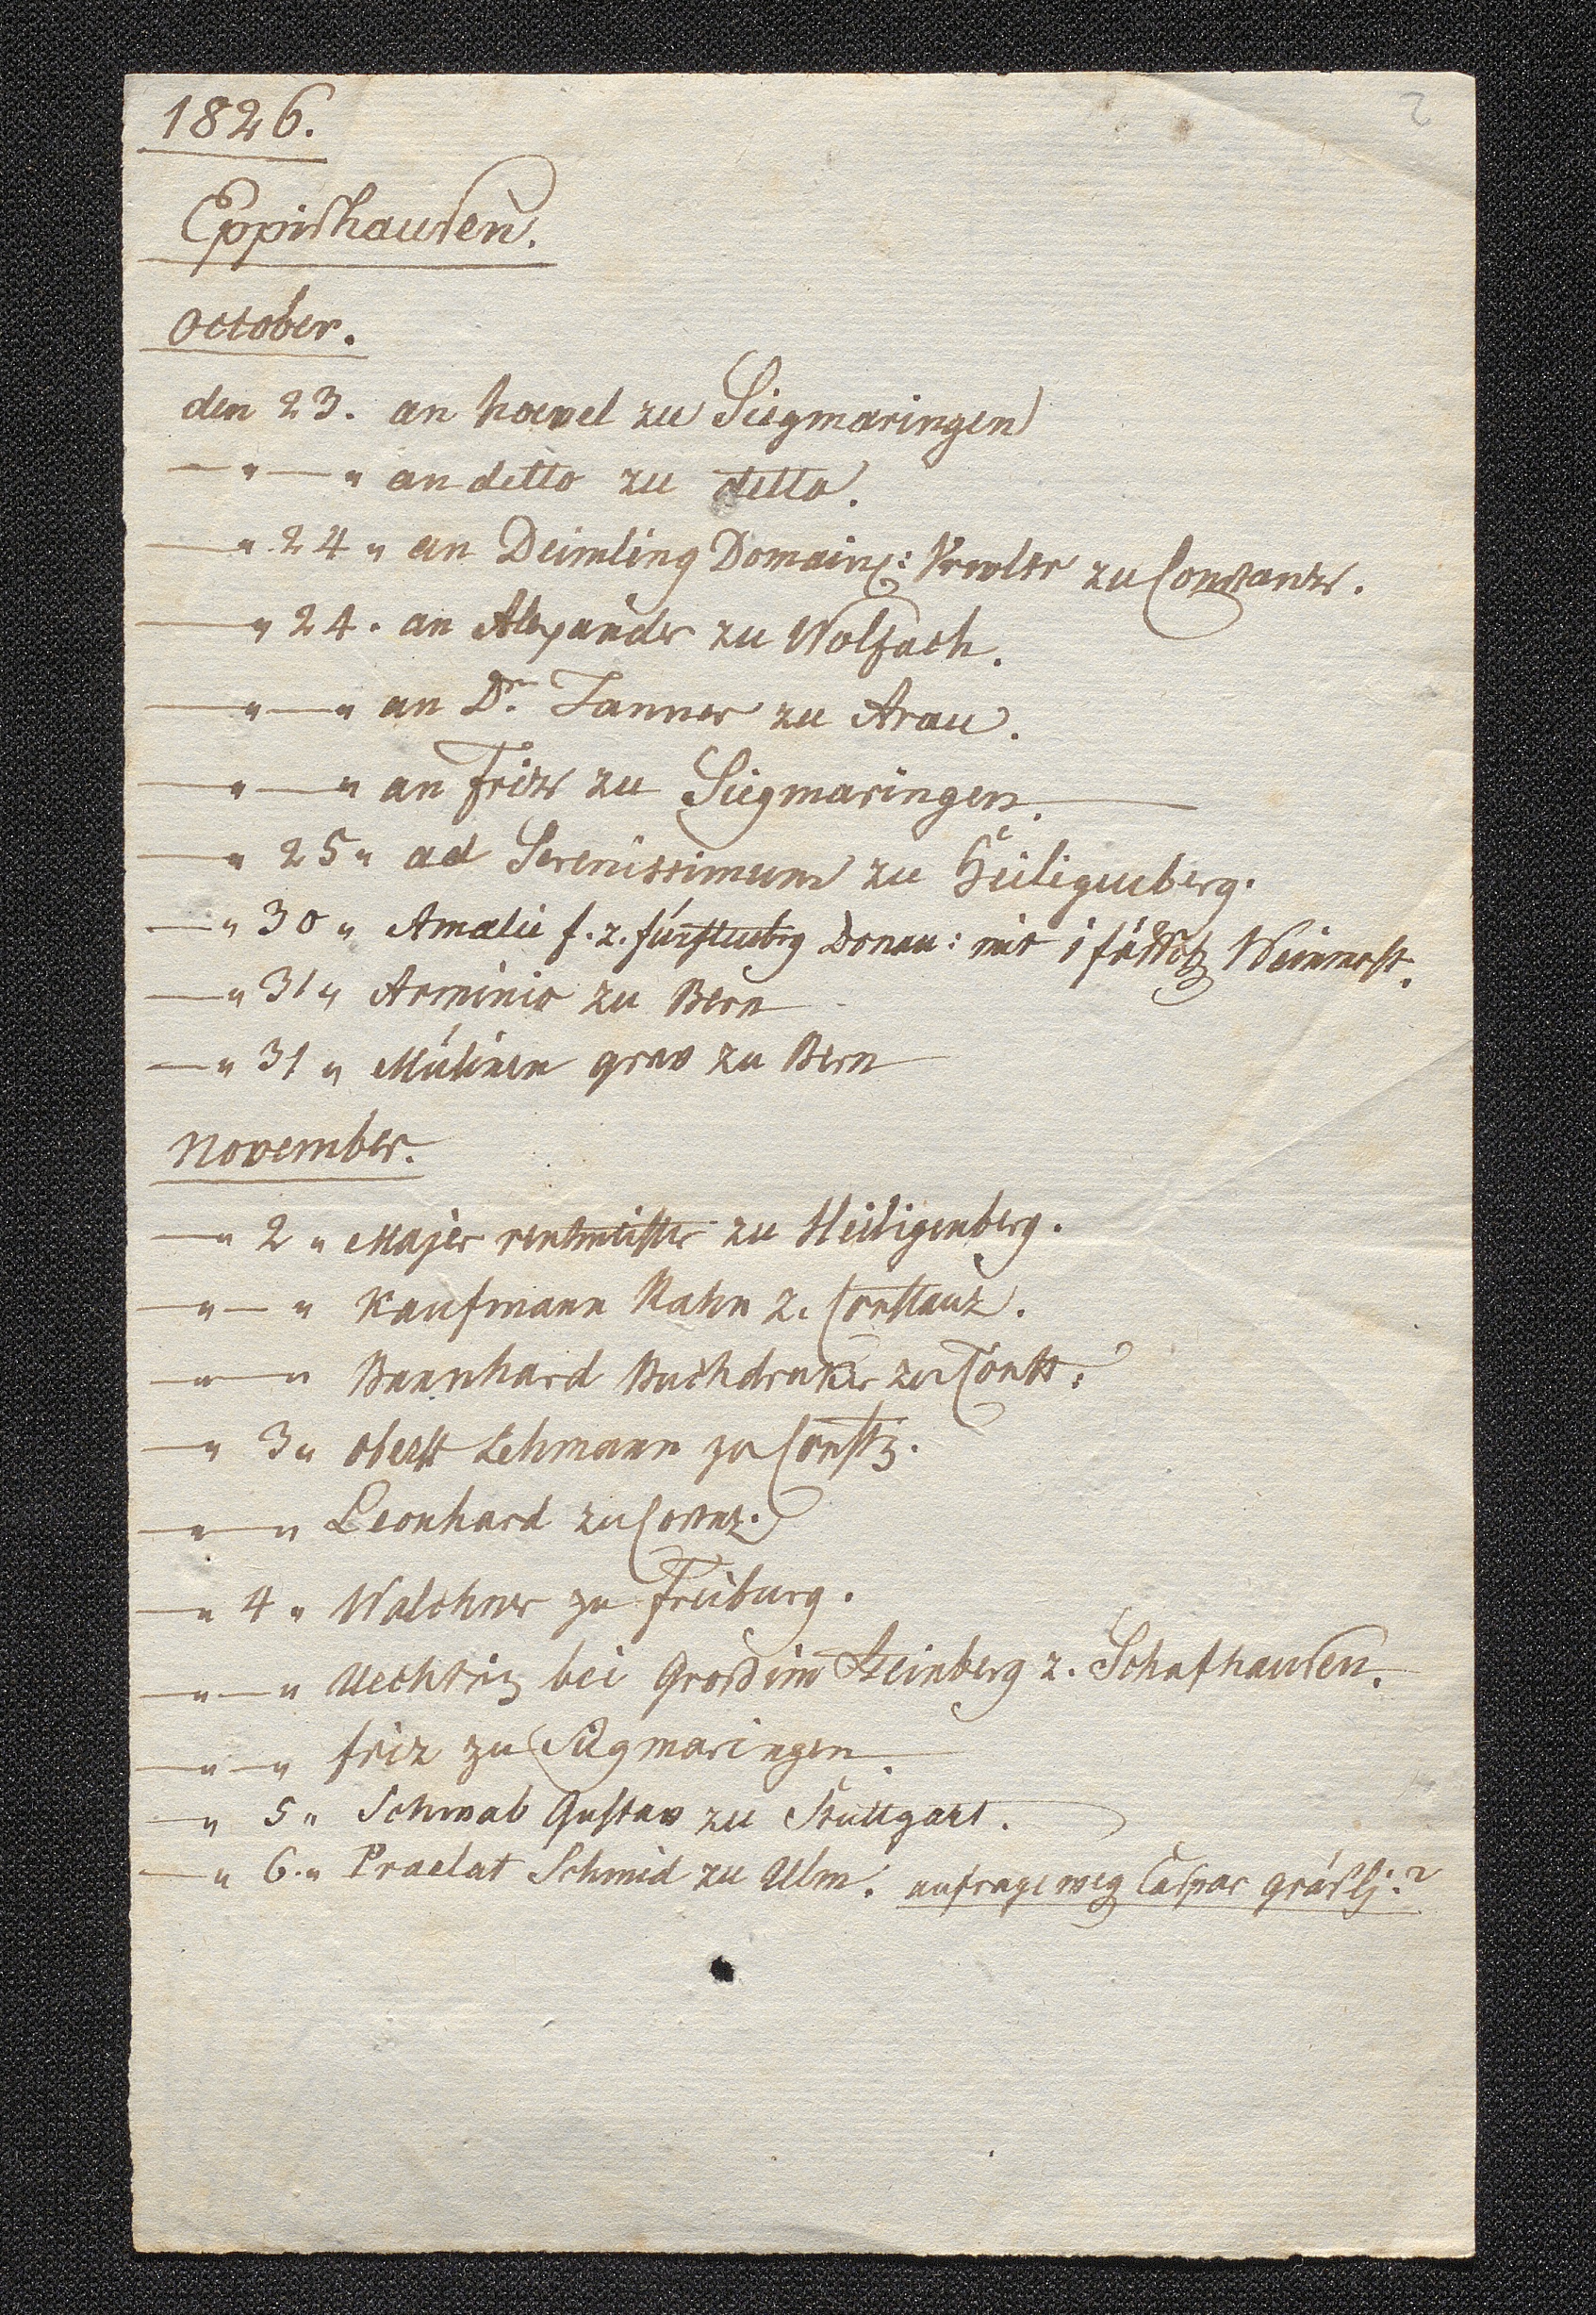 2
1826.
Eppishausen.
October.
den 23. an hoevel zu Siegmaringen
—"—" an detto zu detto.
—" 24 " an Deimling Domain: Vrwltr zu Constantz.
—" 24. an Alexander zu Wolfach.
—"—" an Dr. Tanner zu Arau.
—"—" an Fritz zu Siegmaringen.
—" 25 " ad Serenissimum zu Heiligenberg.
—" 30 " Amalie f. z. fürstenbrg Donau: mit 1 Weinmost.
—" 31 " Arminio zu Bern
—" 31 " Mülinen grav zu Bern
November.
—" 2 " Majer rentmeister zu Heiligenberg.
—"—" Kaufmann Rahn z. Constanz.
—"—" Bannhard Buchdruker zu Const.
—" 3 " oberst Lehmann zu Constz.
—"—" Leonhard zu Constz.
—" 4 " Walchner zu Freiburg.
—"—" Uechtriz bei Groß im Steinberg z. Schafhausen.
—"—" friz zu Sigmaringen.
—" 5 " Schwab Gustav zu Stuttgart.
—" 6. " Praelat Schmid zu Ulm. anfrage weg Caspar